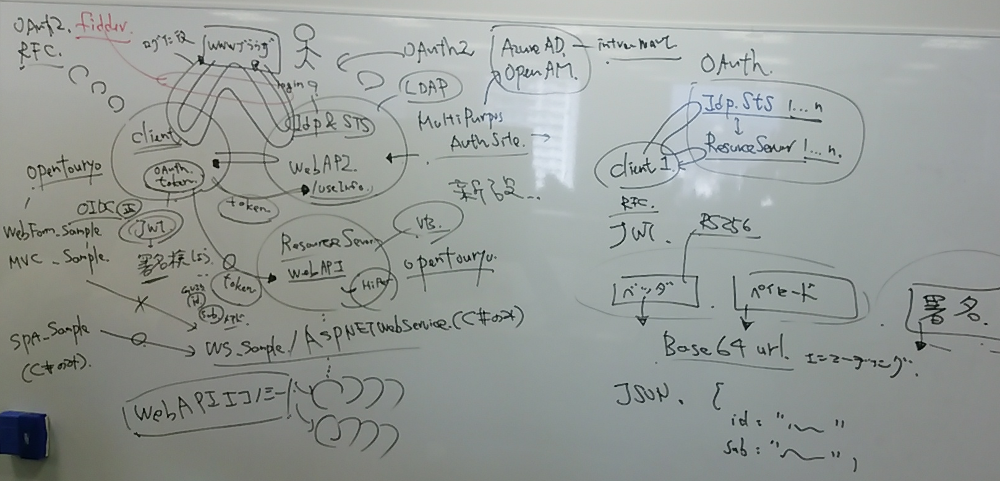 OAuth2.
fiddler.
RFC.
wwwブラウザ
login
OAuth2
AzureAD.
OpenAM.
intramart
LDAP
client
Idp & STS
MultiPurpos
AuthSite.
WebAPI
/useInfo.
OAuth.
token
token
opentouryo
OIDC
JWT
署名検
WebForm_Sample
MVC_Sample.
ResourceServer
WebAPI
VB.
opentouryo.
token
sub
SPA_Sample
(C#のみ)
WS_Sample./AspNETWebService.(C#のみ)
WebAPIエコノミー
OAuth.
Idp.STS 1...n
ResourceServer 1...n.
client 1.
RFC.
JWT.
RS256
ヘッダ
ペイロード
署名.
Base64 url. エンコーディング.
JSON. {
id: " "
sub: " ",